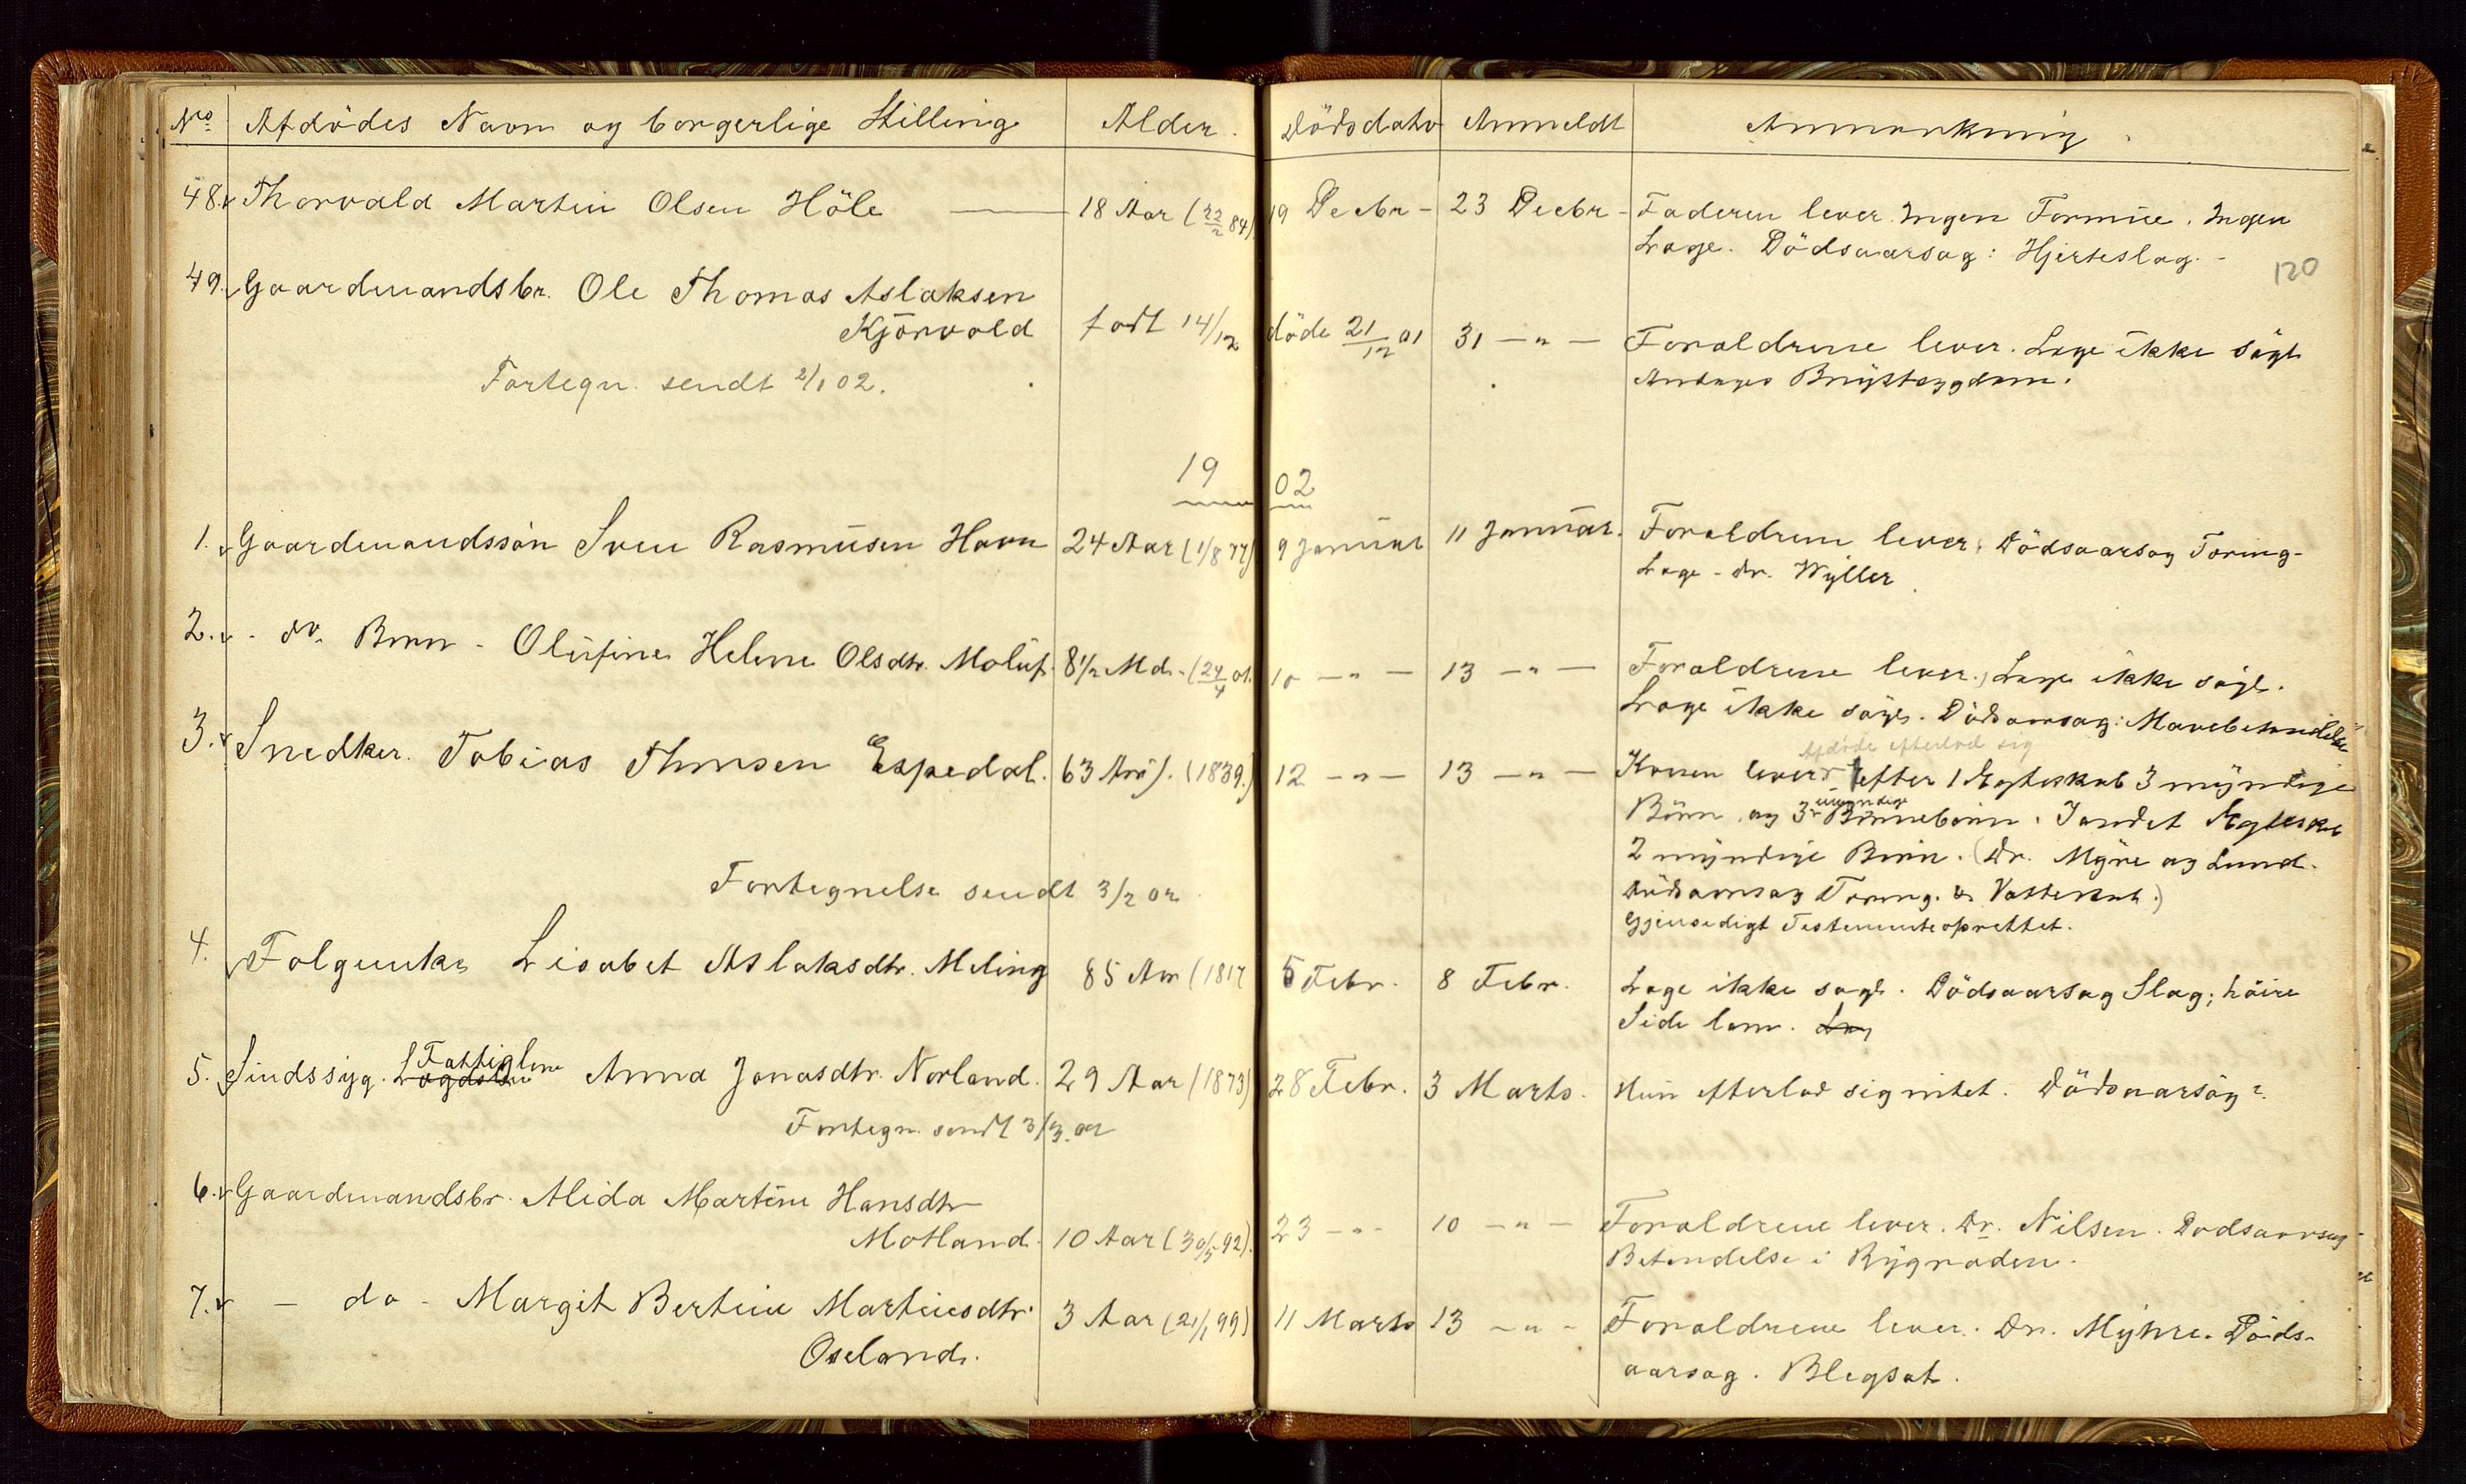 No Afdödes Navn og borgerlige Stilling Alder. Dödsdato Anmeldt Anmerkning.
48. Thorvald Martin Olsen Höle — 18 Aar (22/2 84) 19 Decbr - 23 Decbr - Faderen lever. Ingen Formue. Ingen
Læge. Dödsaarsag: Hjerteslag. -
120
49. Gaardmandsbr. Ole Thomas Aslaksen
Kjörvold födt 14/12 döde 21/12 01 31 — " — Foraldrene lever. Læge ikke sögt
Antages Brystsygdom.
Fortegn. sendt 2/1 02.
1902
1. Gaardmandssön Sven Rasmusen Havn 24 Aar (1/8 77) 9 Januar 11 Januar. Foraldrene lever. Dödsaarsag Tæring-
Læge - Dr. Wyller
2. - do. Barn - Olufine Helene Olsdtr. Moluf. 8½ Md. (24/4 01. 10 — " — 13 — " — Foraldrene lever. Læge ikke sögt.
Læge ikke sögt. Dödsaarsag: Mavebetændelse
3. Snedker. Tobias Thmsen Espedal. 63 Aar (1839.) 12 — " — 13 — " — Konen lever. Afdöde efterlod sig efter 1 Egteskab 3 myndige
Börn og 3 umyndige Börnebörn. I andet Egteskab
2 myndige Börn. (Dr. Myre og Lund.
Dödsaarsag Tæring. & Vattersot.)
Gjensedigt Testamente oprettet.
Fortegnelse sendt 3/2 02
4. Folgeenke Lisabet Aslaksdtr. Meling 85 Aar (1817 5 Febr. 8 Febr. Læge ikke sögt. Dödsaarsag Slag; höire
Side lam. Læg
5. Sindssyg. Lægdslem Fattiglem Anna Jonasdtr. Norland. 29 Aar (1873) 28 Febr. 3 Marts. Hun efterlod sig intet. Dödsaarsag?
Fortegn. sendt 3/3.02
6. Gaardmandsbr. Alida Martine Hansdtr
Motland. 10 Aar (30/5 92). 23 — " — 10 — " — Foraldrene lever. Dr. Nilsen. Dödsaarsag
Betendelse i Rygraden.
7. — do - Margit Bertine Martinsdtr. 3 Aar (21/1 99) 11 Marts 13 — " — Foraldrene lever. Dr. Myhre. Döds-
Oseland. aarsag. Blegsot.